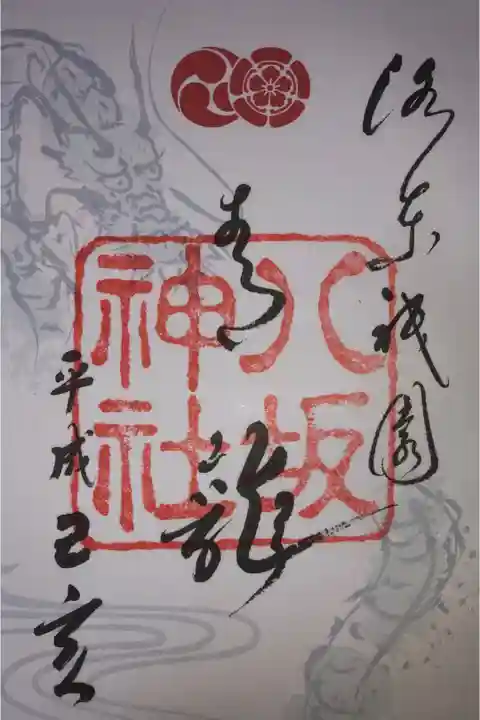 洛東祇園
青龍
八坂
神社
平成己亥